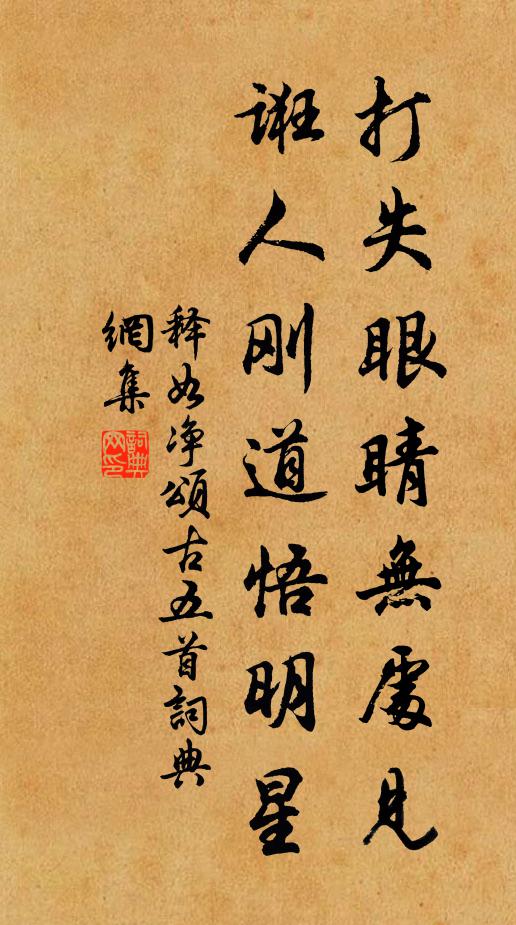 打失眼睛無處見
誑人刚道悟明星
释如净頌古五首詞典
網集
詞典
网印